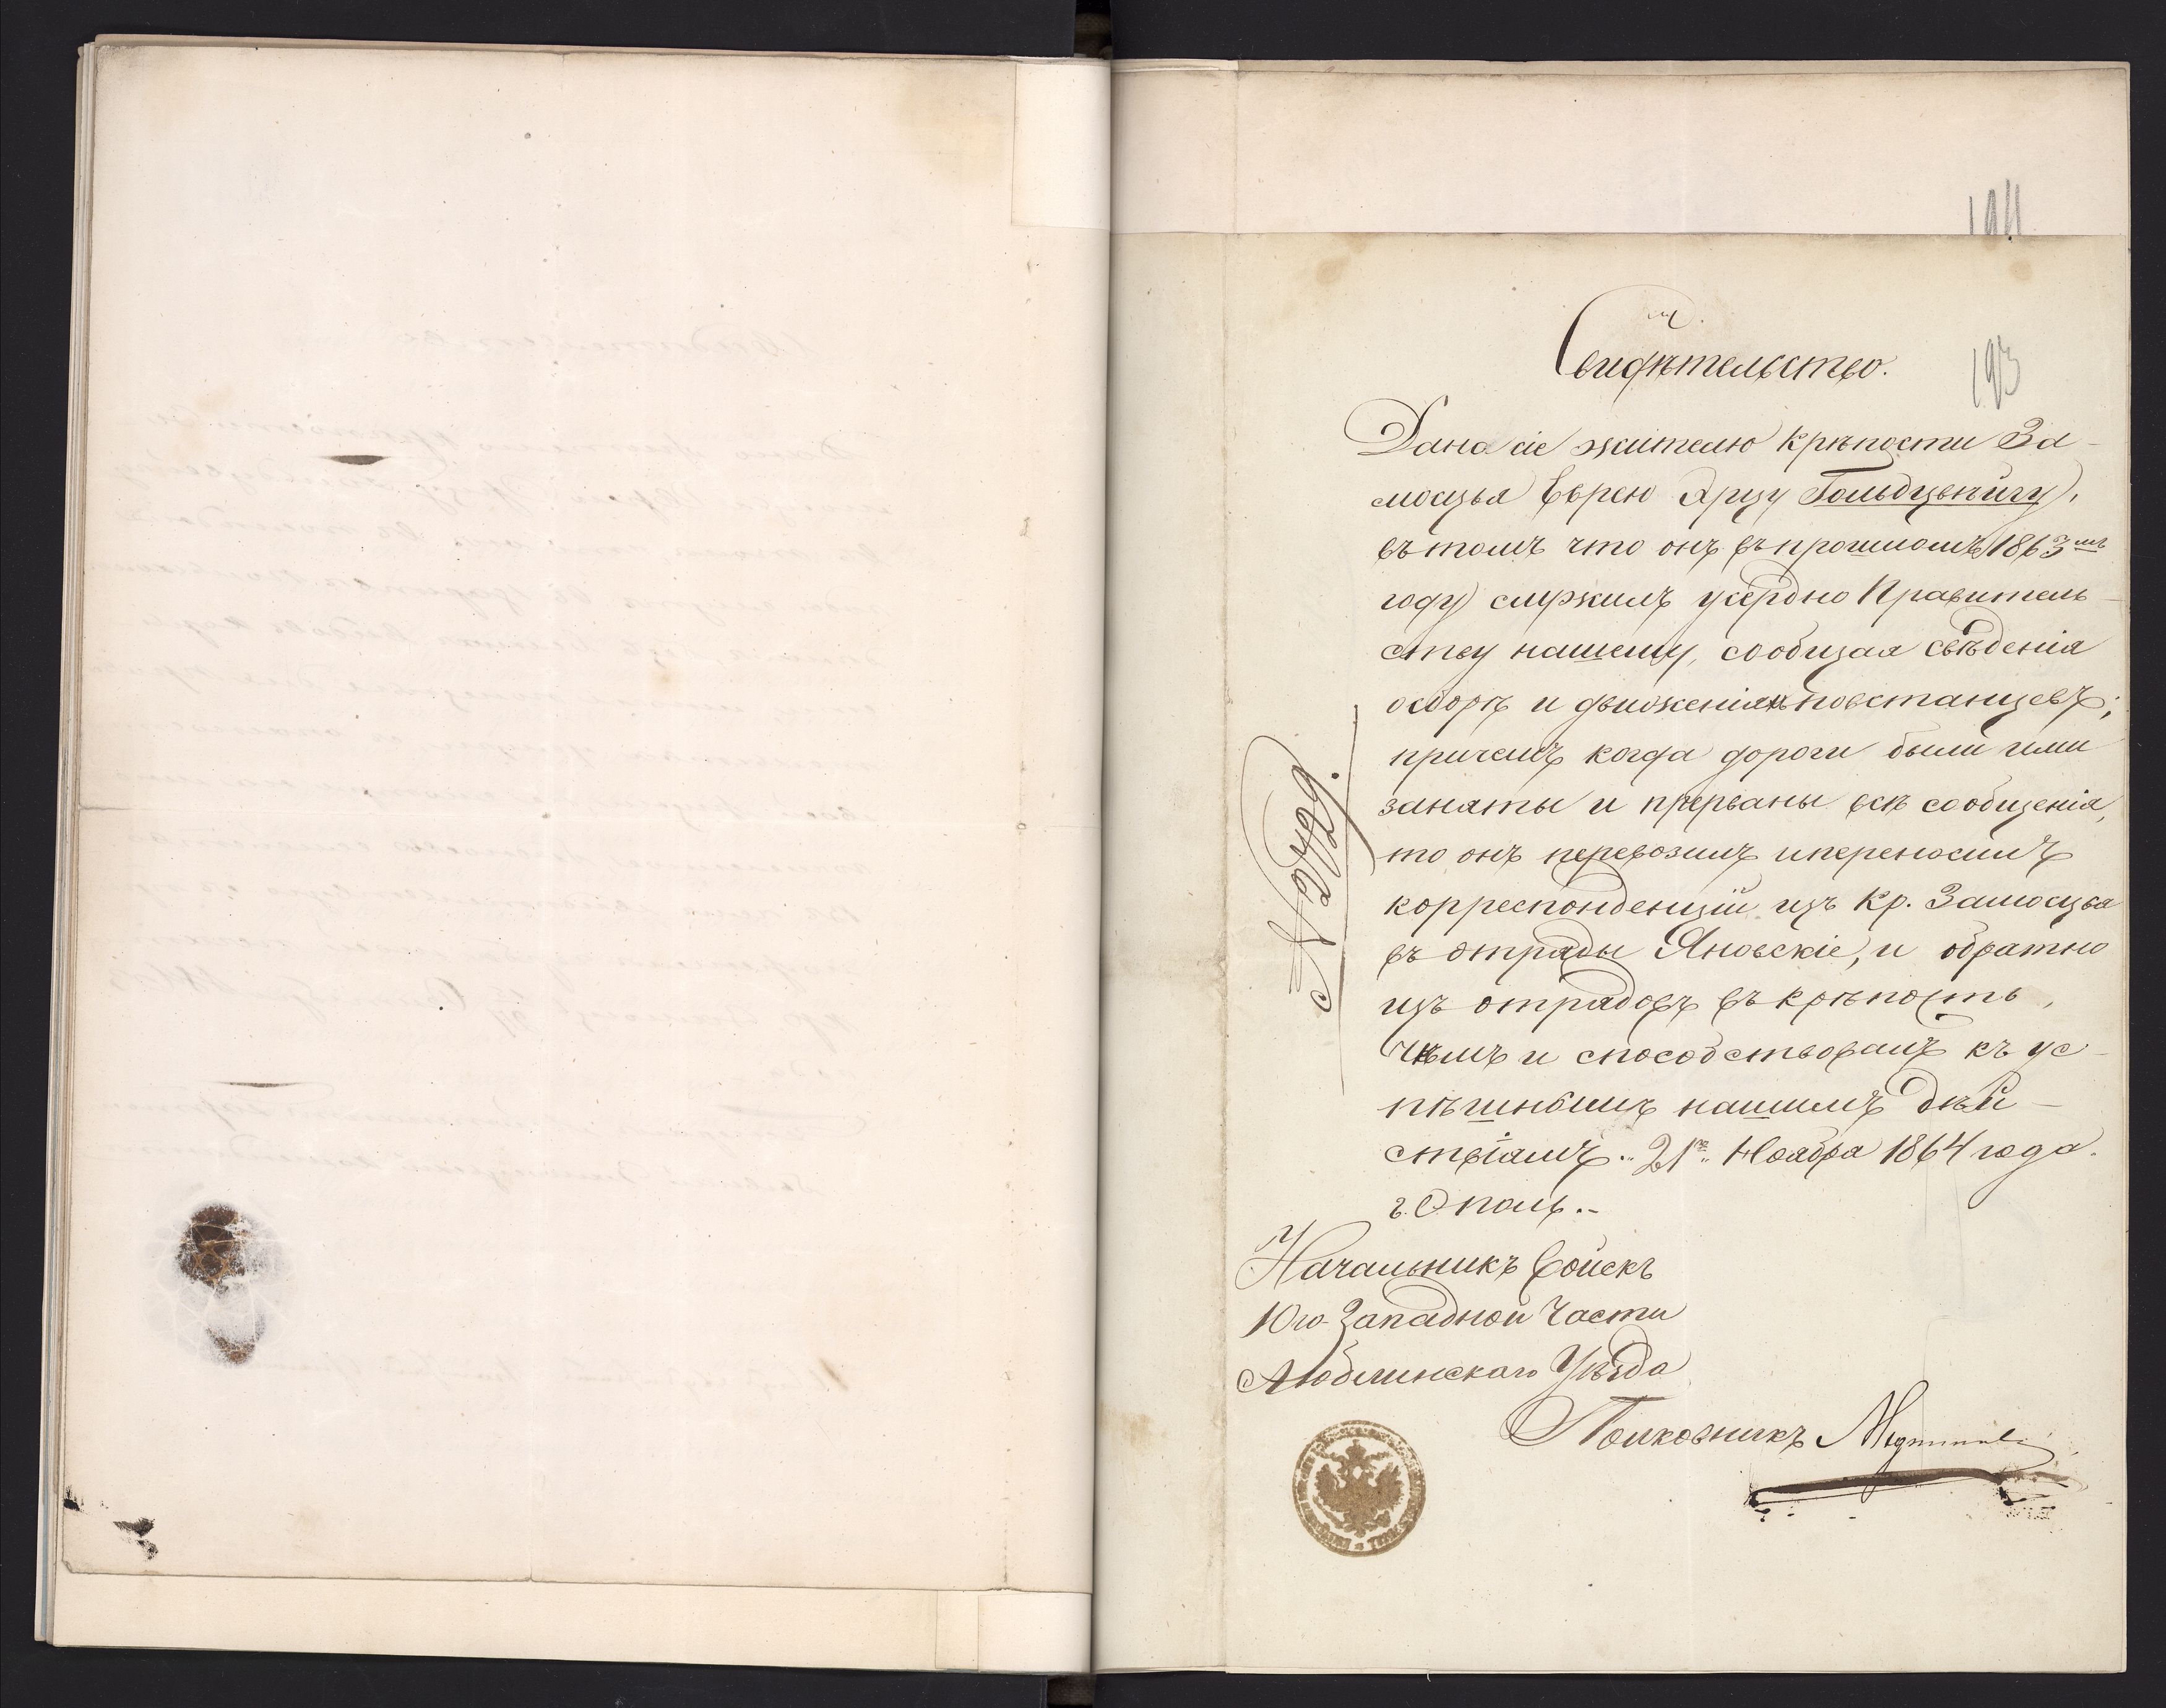 194
Свидѣтельство.
193
Дано сіе жителю крѣпости За-
мосцья Еврею Арцу Гольдцвейгу,
въ томъ что онъ въ прошломъ 1863мъ
году служилъ усердно Правитель-
ству нашему, сообщая свѣденія
о сборѣ и движеніяхъ повстанцевъ;
причемъ когда дороги были ими
заняты и прерваны всѣ сообщенія,
то онъ перевозилъ и переносилъ
корреспонденціи изъ Кр. Замосцья
въ отряды Яновскіе, и обратно
изъ отрядовъ въ крѣпость,
чѣмъ и способствовалъ къ ус-
пѣшнымъ нашимъ дѣй-
ствіямъ. 21го Ноября 1864 года.
г. Ополь.
№
Начальникъ Войскъ
Юго-Западной Части
Люблинскаго Уѣзда
Полковникъ